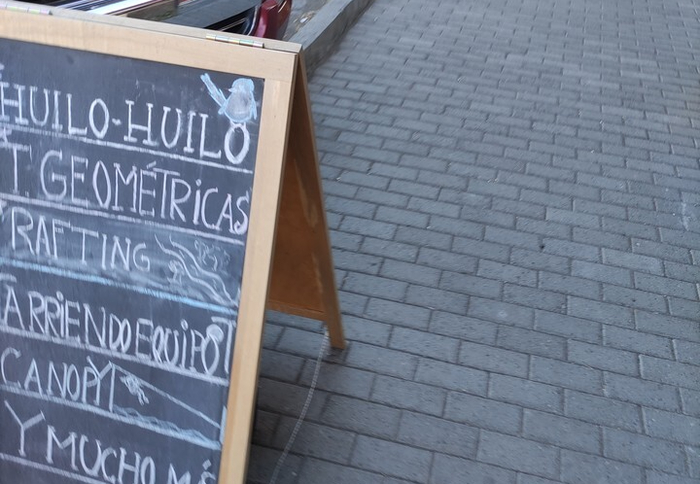 HUILO-HUILO
T. GEOMÉTRICAS
RAFTING
ARRIENDO EQUIPO
CANOPY
Y MUCHO MÁ